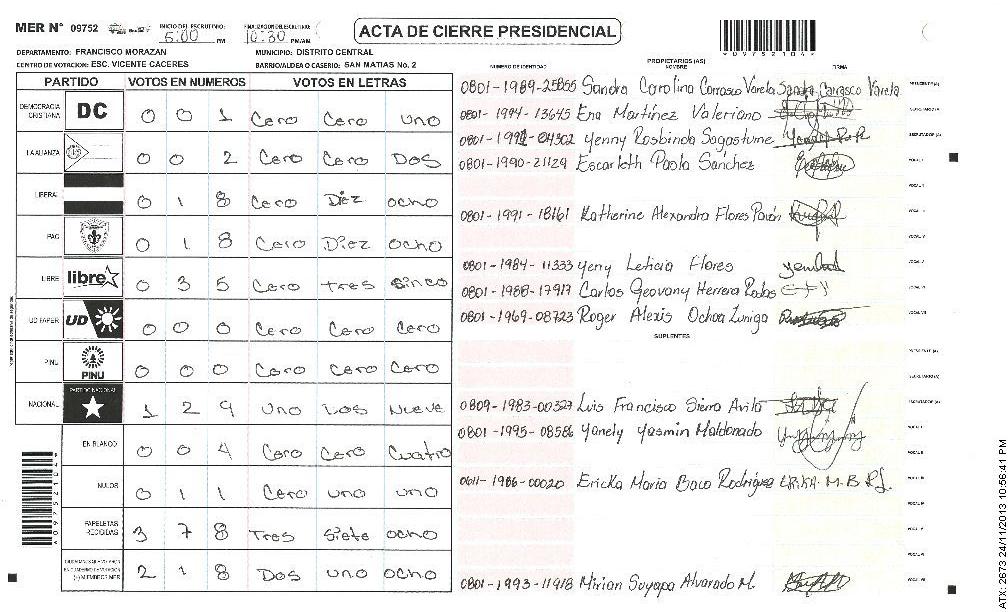 MER N° 09752 INICIO DEL ESCRUTINIO: 5:00 PM FINALIZACION DEL ESCRUTINIO: 10:30 PM/AM ACTA DE CIERRE PRESIDENCIAL
DEPARTAMENTO: FRANCISCO MORAZAN MUNICIPIO: DISTRITO CENTRAL
CENTRO DE VOTACION: ESC. VICENTE CACERES BARRIO/ALDEA O CASERIO: SAN MATIAS No. 2
PARTIDO VOTOS EN NUMEROS VOTOS EN LETRAS
DEMOCRACIA CRISTIANA DC 0 0 1 Cero Cero uno
LA ALIANZA 0 0 2 Cero Cero Dos
LIBERAL 0 1 8 Cero Diez ocho
PAC 0 1 8 Cero Diez ocho
LIBRE libre 0 3 5 Cero Tres Sinco
UD FAPER UD 0 0 0 Cero Cero Cero
PINU PINU 0 0 0 Cero Cero Cero
NACIONAL PARTIDO NACIONAL 1 2 9 uno Dos Nueve
EN BLANCO 0 0 4 Cero Cero Cuatro
NULOS 0 1 1 Cero uno uno
PAPELETAS RECIBIDAS 3 7 8 Tres Siete ocho
2 1 8 Dos uno ocho
PROPIETARIOS (AS)
NUMERO DE IDENTIDAD NOMBRE FIRMA
0801-1989-25855 Sandra Carolina Carrasco Varela Sandra Carrasco Varela PRESIDENTE (A)
0801-1994-13645 Ena Martínez Valeriano SECRETARIO (A)
Yenny Rosbinda Sagastume ESCRUTADOR (A)
0801-1990-21129 Escarleth Paola Sánchez VOCAL I
VOCAL II
0801-1991-18161 Katherine Alexandra Flores Pavón VOCAL III
VOCAL IV
0801-1984-11333 Yeny Leticia Flores VOCAL V
0801-1988-17917 Carlos Geovany Herrera Rodas VOCAL VI
0801-1969-08723 Roger Alexis Ochoa Zuniga VOCAL VII
SUPLENTES
PRESIDENTE (A)
SECRETARIO (A)
0809-1983-00327 Luis Francisco Sierra Avila ESCRUTADOR (A)
0801-1995-08586 Yanely Yasmin Maldonado VOCAL I
VOCAL II
0611-1986-00020 Ericka Maria Baca Rodríguez ERIKA M.B VOCAL III
VOCAL IV
VOCAL V
VOCAL VI
0801-1993-11918 Mirian Suyapa Alvarado M. VOCAL VII
*09752104*
*09752104*
ATX: 2673 24/11/2013 10:56:41 PM